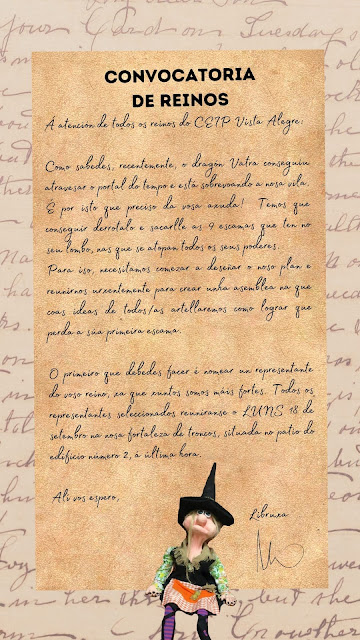 CONVOCATORIA
DE REINOS
A atención de todos os reinos do CEIP Vista Alegre:
Como sabedes, recentemente, o dragón Vatra conseguiu
atravesar o portal do tempo e está sobrevoando a nosa vila.
É por isto que preciso da vosa axuda! Temos que
conseguir derrotalo e sacarlle as 9 escamas que ten no
seu lombo, nas que se atopan todos os seus poderes.
Para iso, necesitamos comezar a deseñar o noso plan e
reunirnos urxentemente para crear unha asemblea na que
coas ideas de todos/as artellaremos como lograr que
perda a súa primeira escama.
O primeiro que debedes facer é nomear un representante
do voso reino, xa que xuntos somos máis fortes. Todos os
representantes seleccionados reuniranse o LUNS 18 de
setembro na nosa fortaleza de troncos, situada no patio do
edificio número 2, á última hora.
Alí vos espero,
Libruxa